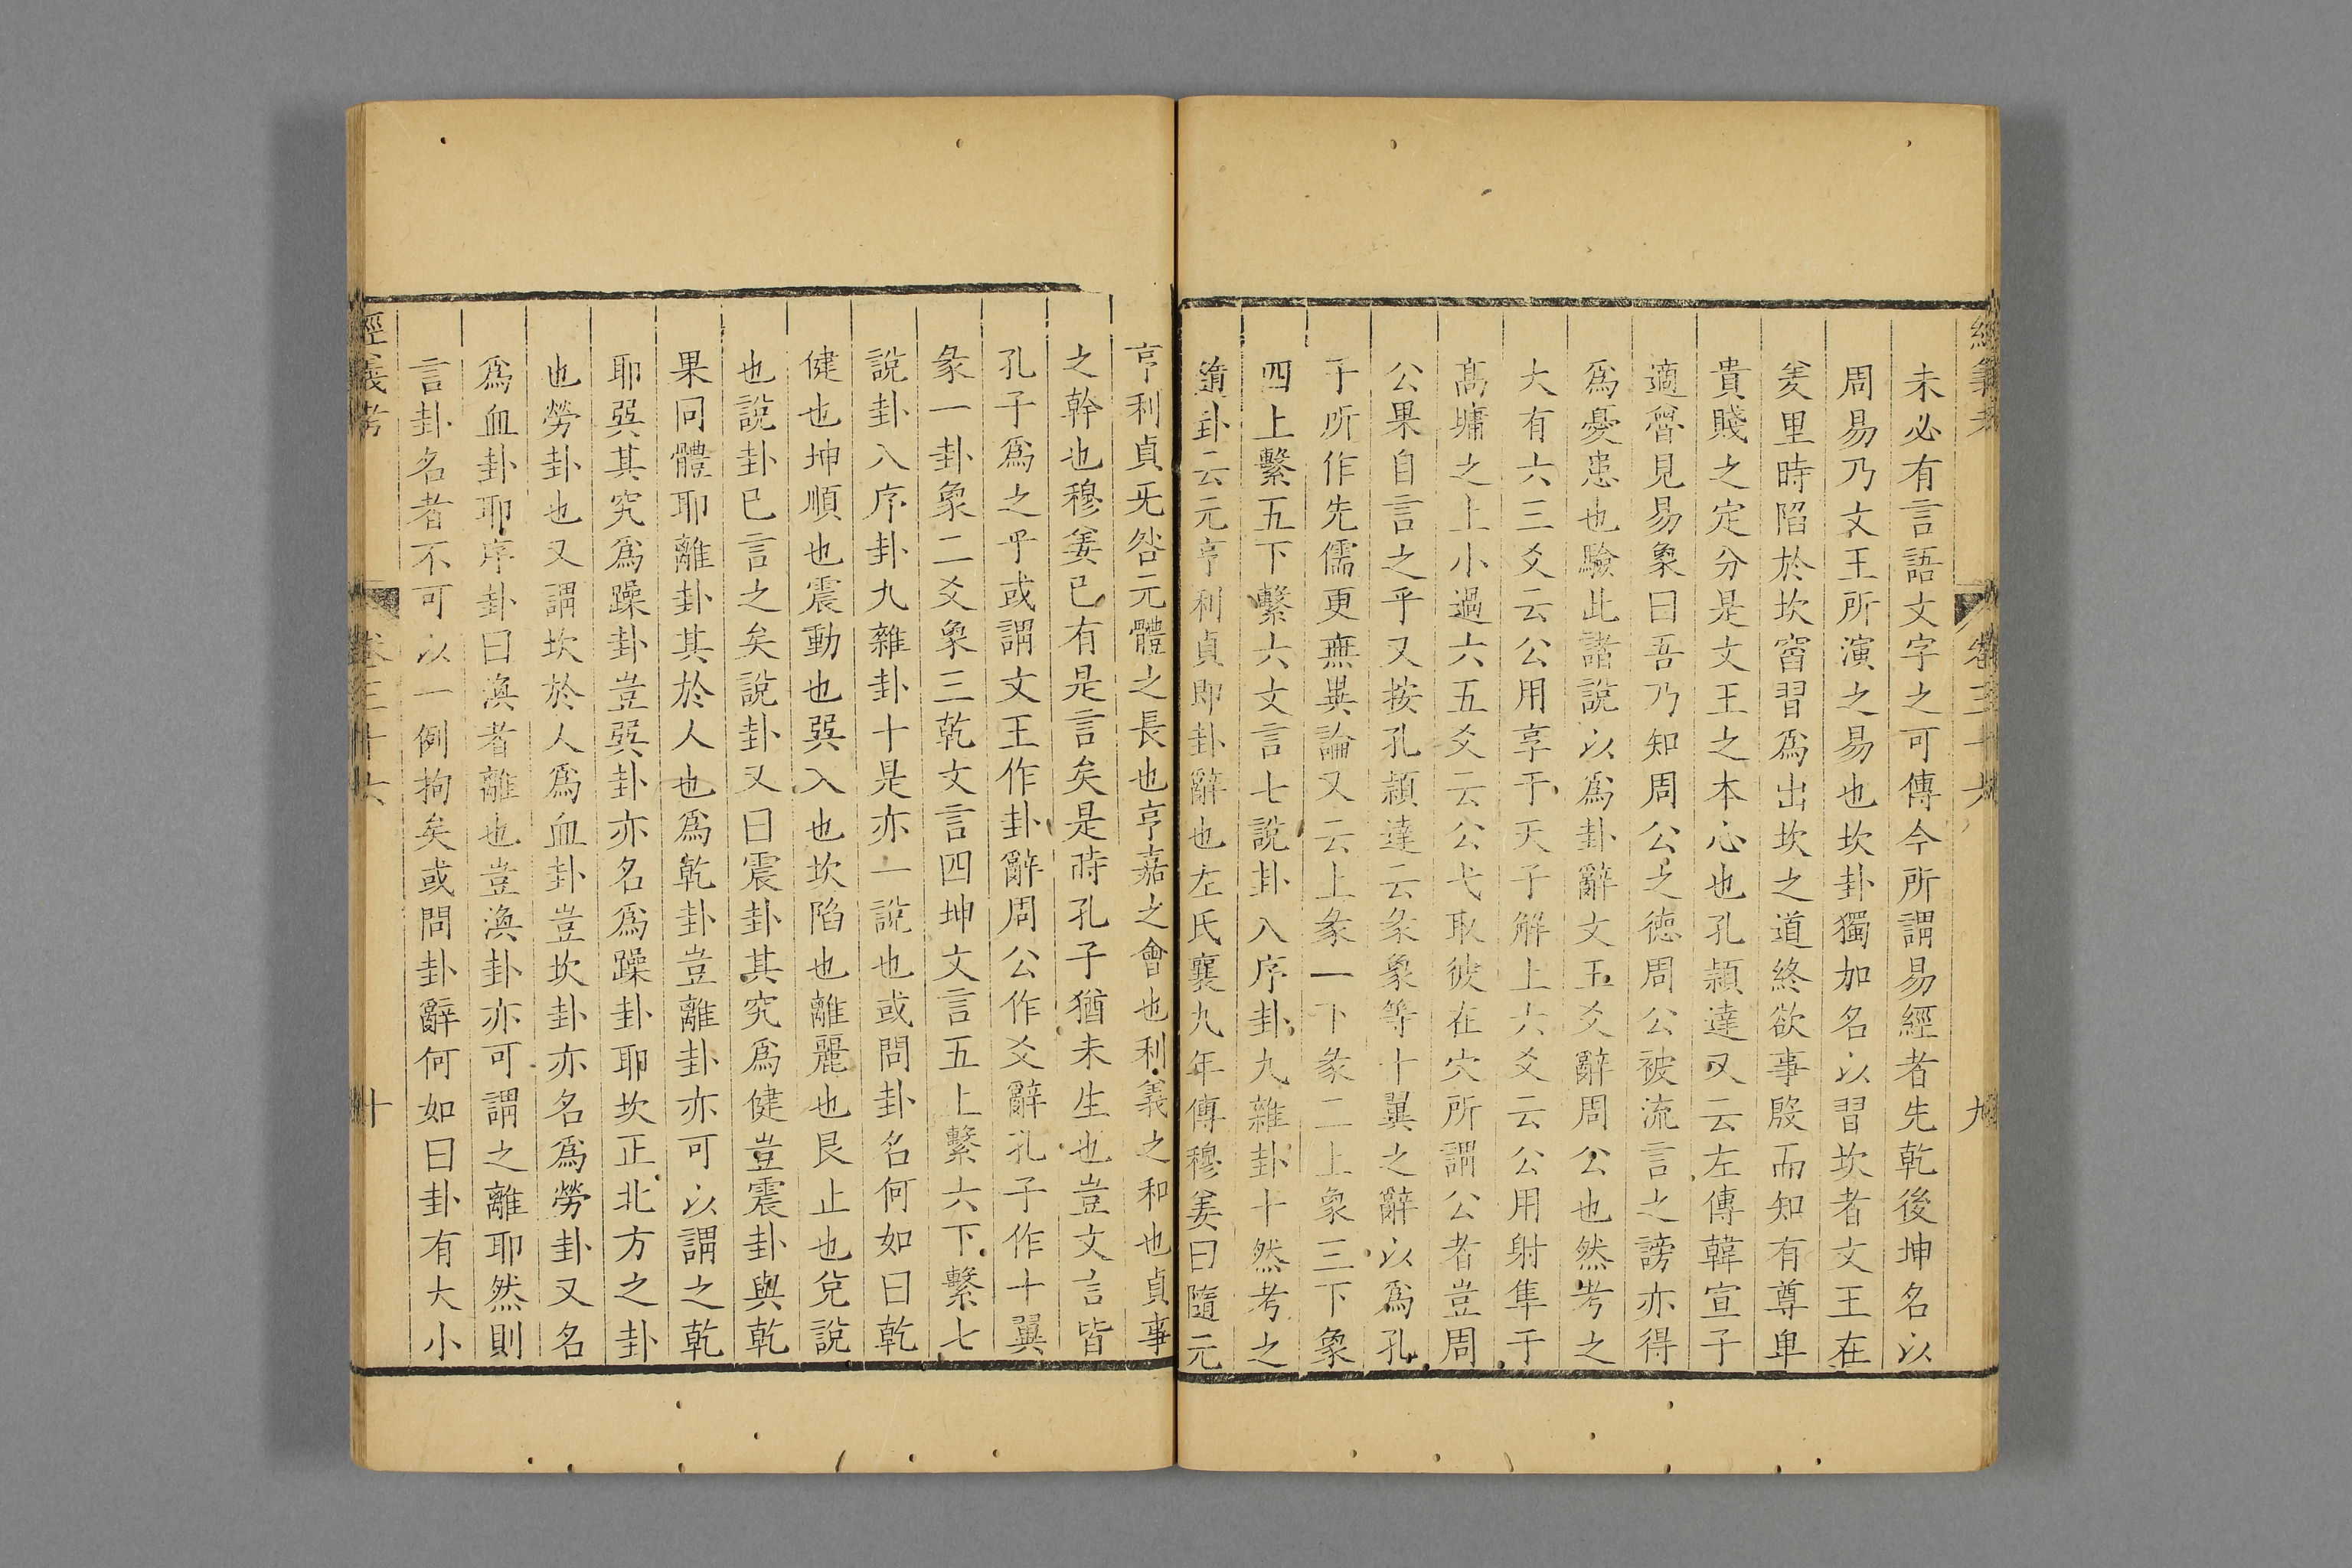 經義考 卷三十六 九
未必有言語文字之可傳今所謂易經者先乾後坤名以
周易乃文王所演之易也坎卦獨加名以習坎者文王在
羑里時陷於坎窞習爲出坎之道終欲事殷而知有尊卑
貴賤之定分是文王之本心也孔穎達又云左傳韓宣子
適魯見易象曰吾乃知周公之德周公被流言之謗亦得
爲憂患也驗此諸說以爲卦辭文王爻辭周公也然考之
大有六三爻云公用享于天子解上六爻云公用射隼于
高墉之上小過六五爻云公弋取彼在穴所謂公者豈周
公果自言之乎又按孔穎達云彖象等十翼之辭以爲孔
子所作先儒更無異論又云上彖一下彖二上象三下象
四上繫五下繫六文言七說卦八序卦九雜卦十然考之
隨卦云元亨利貞即卦辭也左氏襄九年傳穆姜曰隨元
亨利貞无咎元體之長也亨嘉之會也利義之和也貞事
之幹也穆姜已有是言矣是時孔子猶未生也豈文言皆
孔子爲之乎或謂文王作卦辭周公作爻辭孔子作十翼
彖一卦象二爻象三乾文言四坤文言五上繫六下繫七
說卦八序卦九雜卦十是亦一說也或問卦名何如曰乾
健也坤順也震動也巽入也坎陷也離麗也艮止也兌說
也說卦已言之矣說卦又曰震卦其究爲健豈震卦與乾
果同體耶離卦其於人也爲乾卦豈離卦亦可以謂之乾
耶巽其究爲躁卦豈巽卦亦名爲躁卦耶坎正北方之卦
也勞卦也又謂坎於人爲血卦豈坎卦亦名爲勞卦又名
爲血卦耶序卦曰渙者離也豈渙卦亦可謂之離耶然則
言卦名者不可以一例拘矣或問卦辭何如曰卦有大小
經義考 卷三十六 十